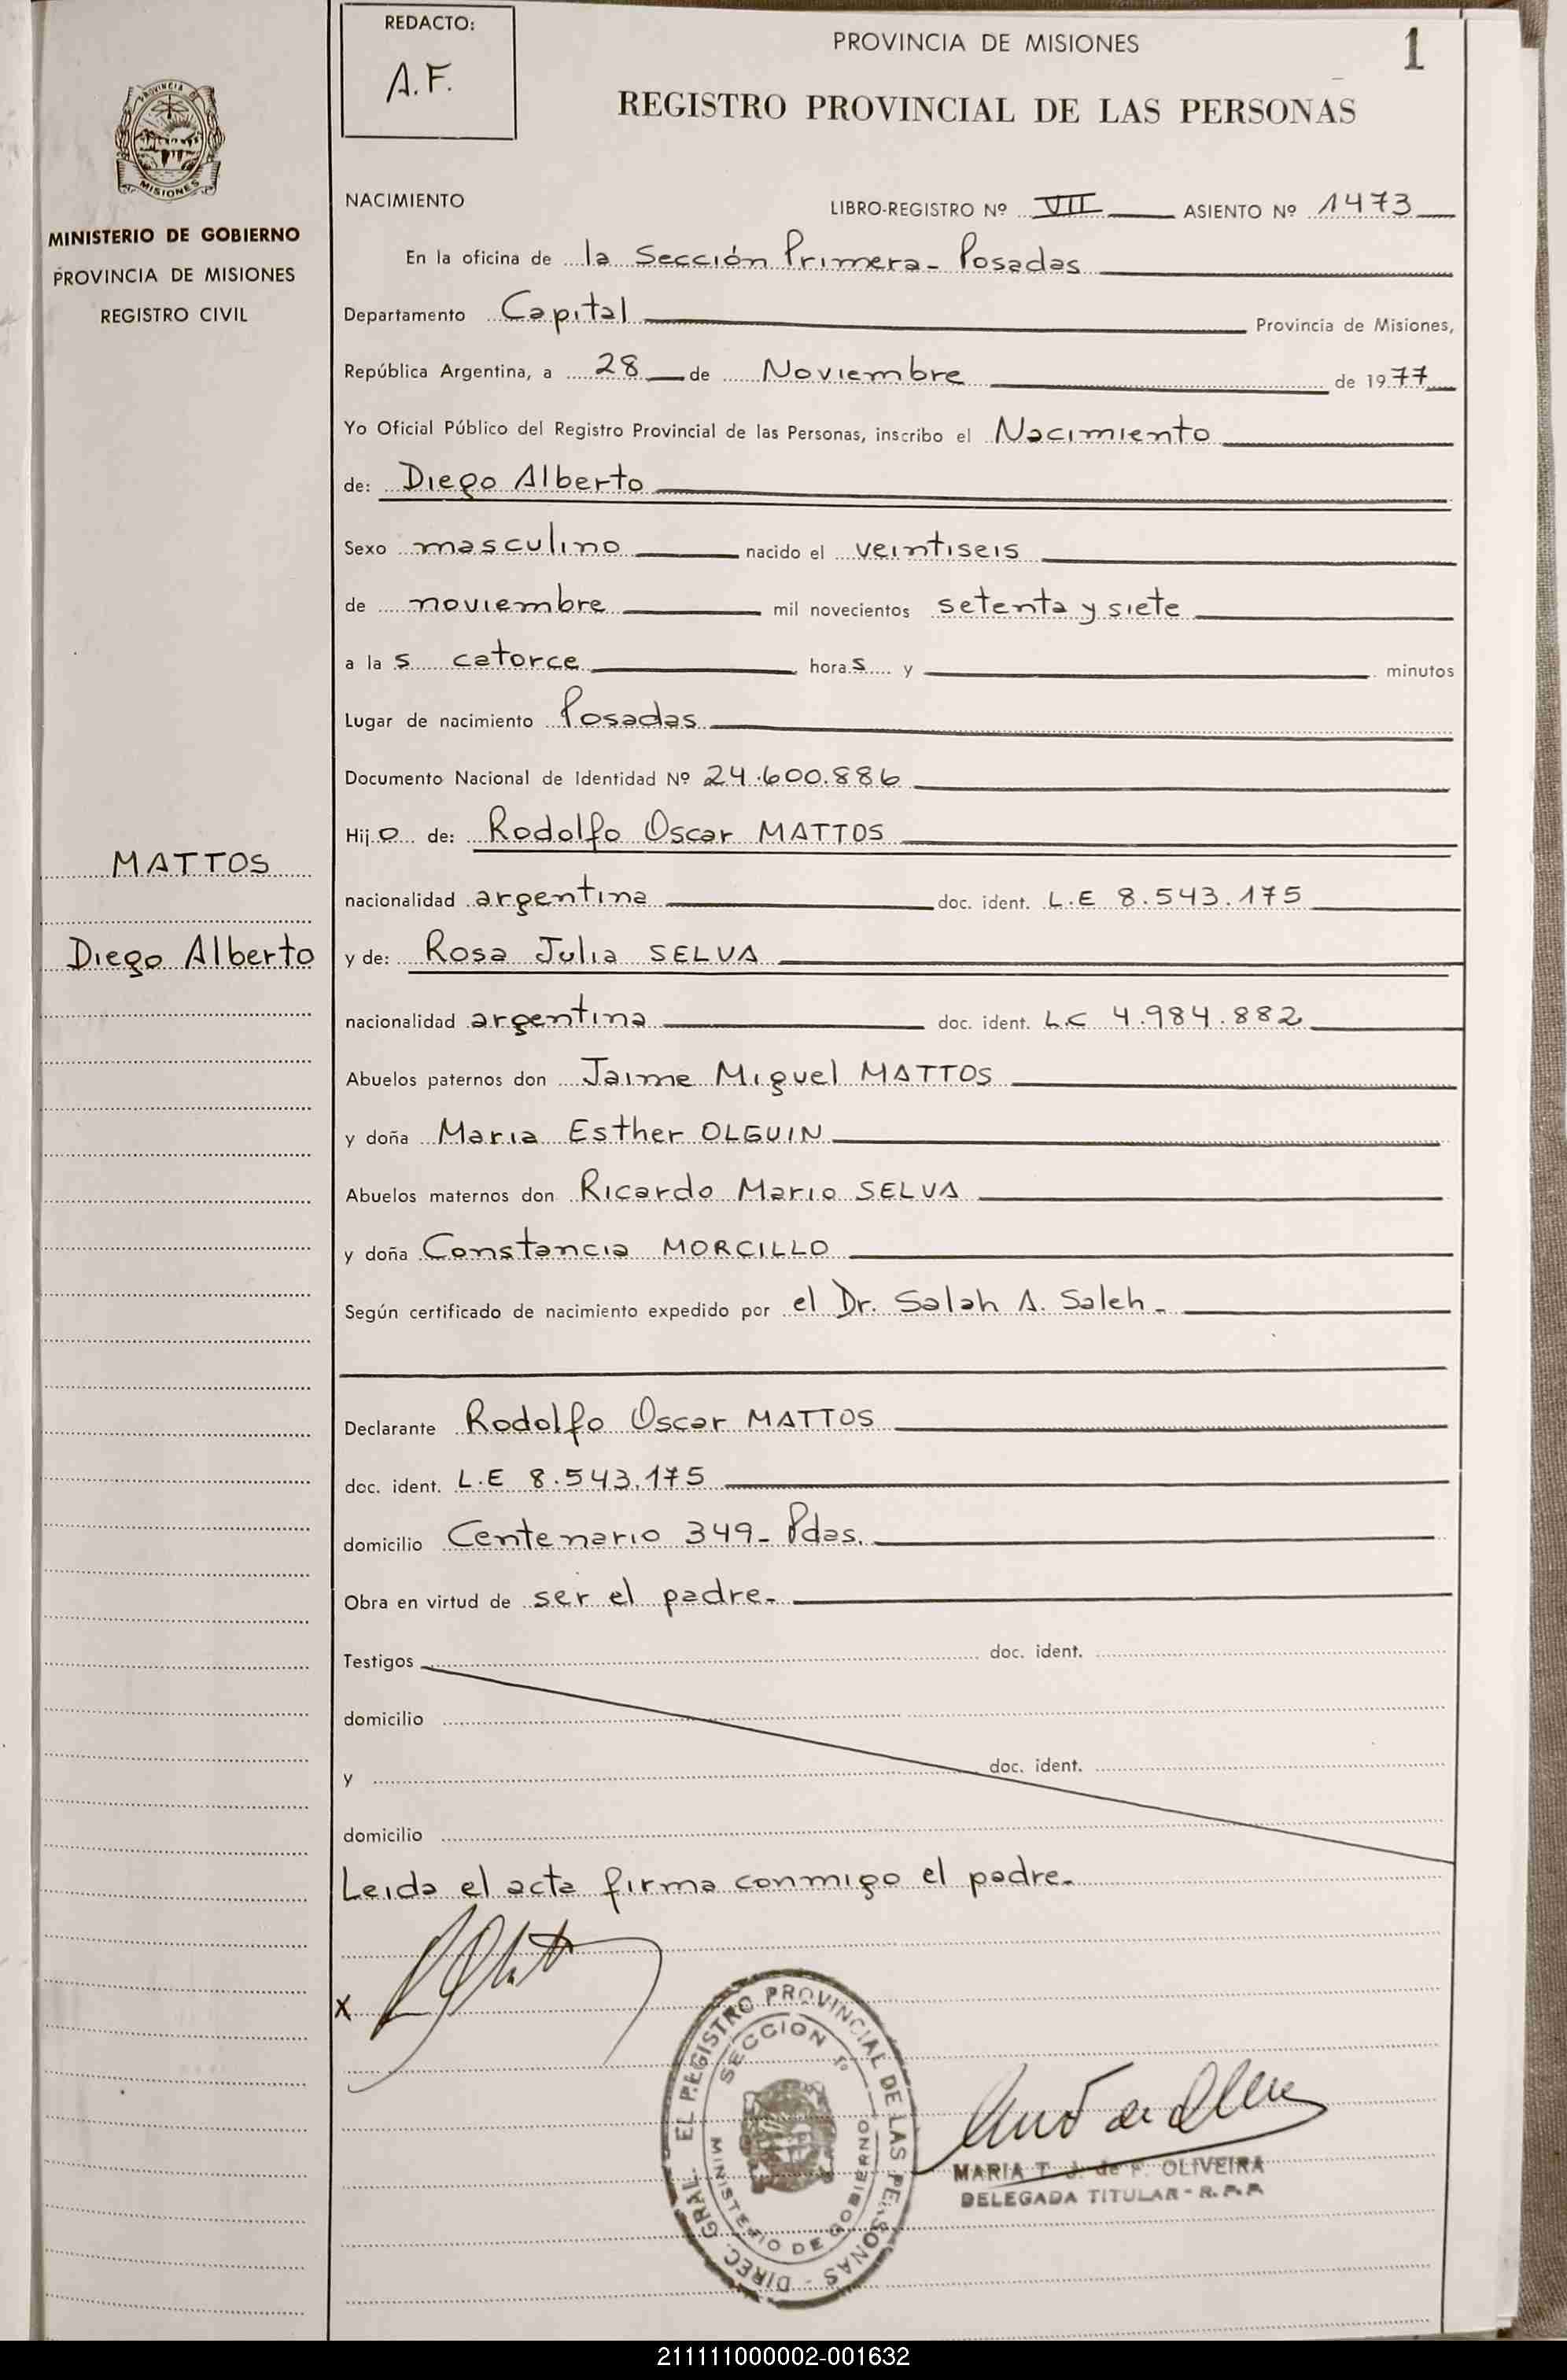 REDACTO:
A.F.
PROVINCIA DE MISIONES
1
REGISTRO PROVINCIAL DE LAS PERSONAS
PROVINCIA DE
MISIONES
MINISTERIO DE GOBIERNO
PROVINCIA DE MISIONES
REGISTRO CIVIL
NACIMIENTO
LIBRO-REGISTRO Nº VII ASIENTO Nº 1473
En la oficina de la Sección Primera - Posadas
Departamento Capital Provincia de Misiones,
República Argentina, a 28 de Noviembre de 1977
Yo Oficial Público del Registro Provincial de las Personas, inscribo el Nacimiento
de: Diego Alberto
Sexo masculino nacido el veintiseis
de noviembre mil novecientos setenta y siete
a las catorce horas y minutos
Lugar de nacimiento Posadas
Documento Nacional de Identidad Nº 24.600.886
Hijo de: Rodolfo Oscar MATTOS
MATTOS
nacionalidad argentina doc. ident. L.E 8.543.175
Diego Alberto
y de: Rosa Julia SELVA
nacionalidad argentina doc. ident. L.C 4.984.882
Abuelos paternos don Jaime Miguel MATTOS
y doña Maria Esther OLGUIN
Abuelos maternos don Ricardo Mario SELVA
y doña Constancia MORCILLO
Según certificado de nacimiento expedido por el Dr. Salah A. Saleh -
Declarante Rodolfo Oscar MATTOS
doc. ident. L.E 8.543.175
domicilio Centenario 349 - Pdas.
Obra en virtud de ser el padre -
Testigos doc. ident.
domicilio
y doc. ident.
domicilio
Leida el acta firma conmigo el padre -
X
DIREC. GRAL. EL REGISTRO PROVINCIAL DE LAS PERSONAS -
SECCION 1º
MINISTERIO DE GOBIERNO
MARIA T. J. de F. OLIVEIRA
DELEGADA TITULAR - R.P.P.
211111000002-001632